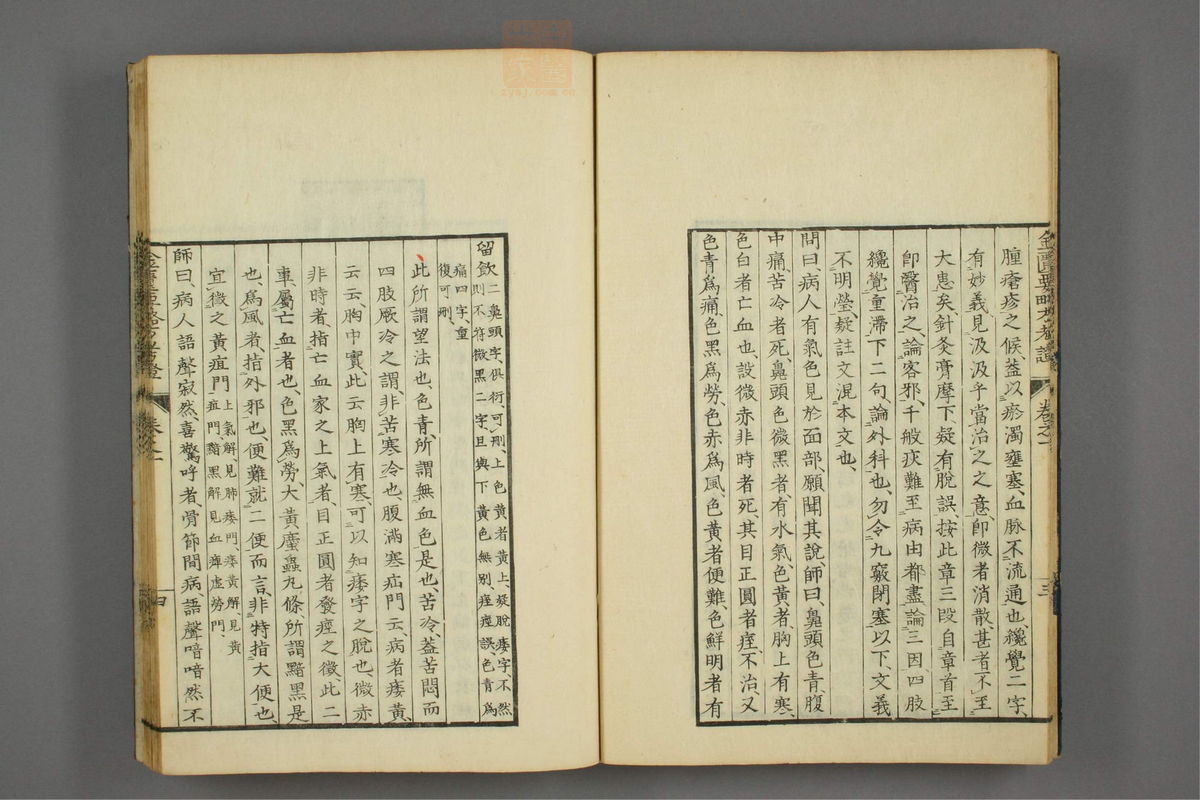 腫瘡疹之候、蓋以瘀濁壅塞、血脉不流通也、纔覺二字、
有妙義、見汲汲乎當治之之意、卽微者消散、甚者不至
大患矣、針灸膏摩下、疑有脫誤、按此章三段、自章首至
卽醫治之、論客邪、千般疢難至病由都盡、論三因、四肢
纔覺重滯下二句、論外科也、勿令九竅閉塞以下、文義
不明瑩、疑註文混本文也、
問曰、病人有氣色見於面部、願聞其說、師曰、鼻頭色青、腹
中痛、苦冷者死、鼻頭色微黑者、有水氣、色黃者、胸上有寒、
色白者、亡血也、設微赤非時者死、其目正圓者痙、不治、又
色青爲痛、色黑爲勞、色赤爲風、色黃者便難、色鮮明者有
留飲、二鼻頭字、俱衍、可刪、上色黃者黃上、疑脫痿字、不然
則不符、微黑二字、且與下黃色無別、痙誤、色青爲
痛四字、重
復可刪、
此所謂望法也、色青、所謂無血色是也、苦冷、蓋苦悶而
四肢厥冷之謂、非苦寒冷也、腹滿寒疝門云、病者痿黃、
云云、胸中實、此云胸上有寒、可以知痿字之脫也、微赤
非時者、指亡血家之上氣者、目正圓者、發痙之徵、此二
車、屬亡血者也、色黑爲勞、大黃䗪蟲丸條所謂黯黑是
也、爲風者、指外邪也、便難、就二便而言、非特指大便也、
宜徵之黃疸門、上氣解、見肺痿門、痿黃解、見黃
疸門、黯黑解、見血痺虛勞門、
師曰、病人語聲寂然、喜驚呼者、骨節間病、語聲喑喑然不
卷之一
三
卷之一
四